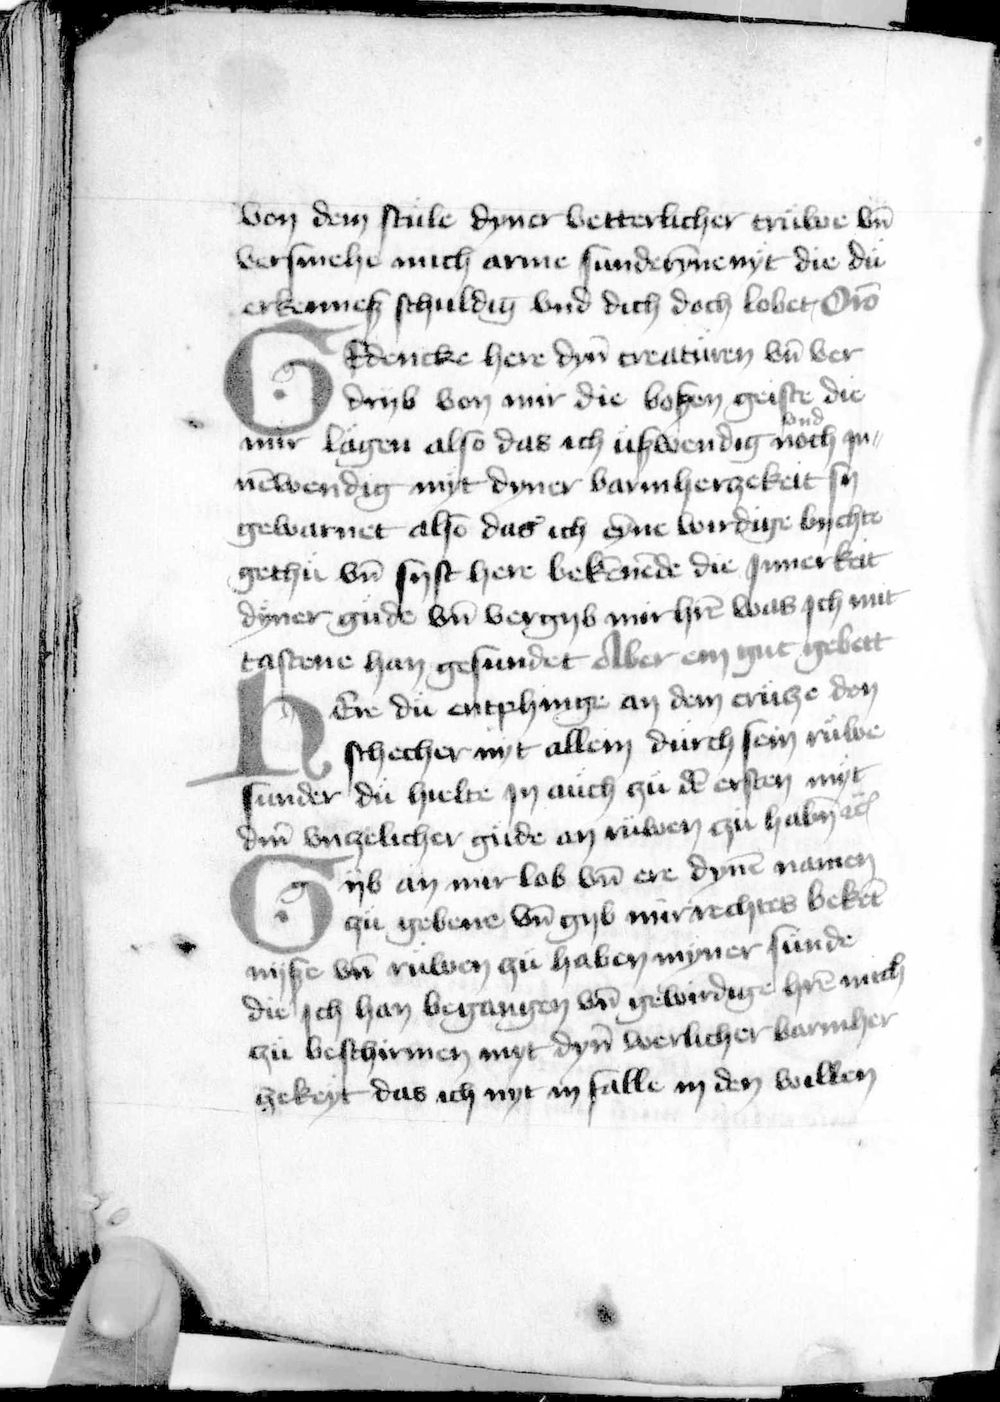 von dem stůle dyner vetterlicher trůwe vn̄
versmehe mich arme sunderȳne nyt die dů
erkennest schuldig vnd dich doch lobet Orō
GEdencke here dyn̄ creatůren vn̄ ver
drijb von mir die boßen geiste die
mir lagen also das ich ußwendig noch vnd jn⸗
nēwendig myt dyner barmherzekeit sy
gewarnet also das ich eyne wirdige bychte
gethů vn̄ syst here bekēnēde die Jnnerkeit
dyner gůde vn̄ vergyb mir hr̄e was Jch mit
tastene han gesundet Aber ein gut gebett
HEre dů entphinge an dem crůtze den
schecher nyt allein durch sein růwe
sunder dů hielte jn auch zů dē ersten myt
din̄ vnzelicher gůde an růwen zů habn̄
Gijb an mir lob vn̄ ere dynē namen
zů gebene vn̄ gyb mir rechtes bekēt
nyße vn̄ růwen zů haben myner sůnde
die Jch han begangen vn̄ gewirdige hr̄e mich
zů beschirmen myt dyn̄ werlicher barmher
zekeyt das ich nyt in falle in den willen